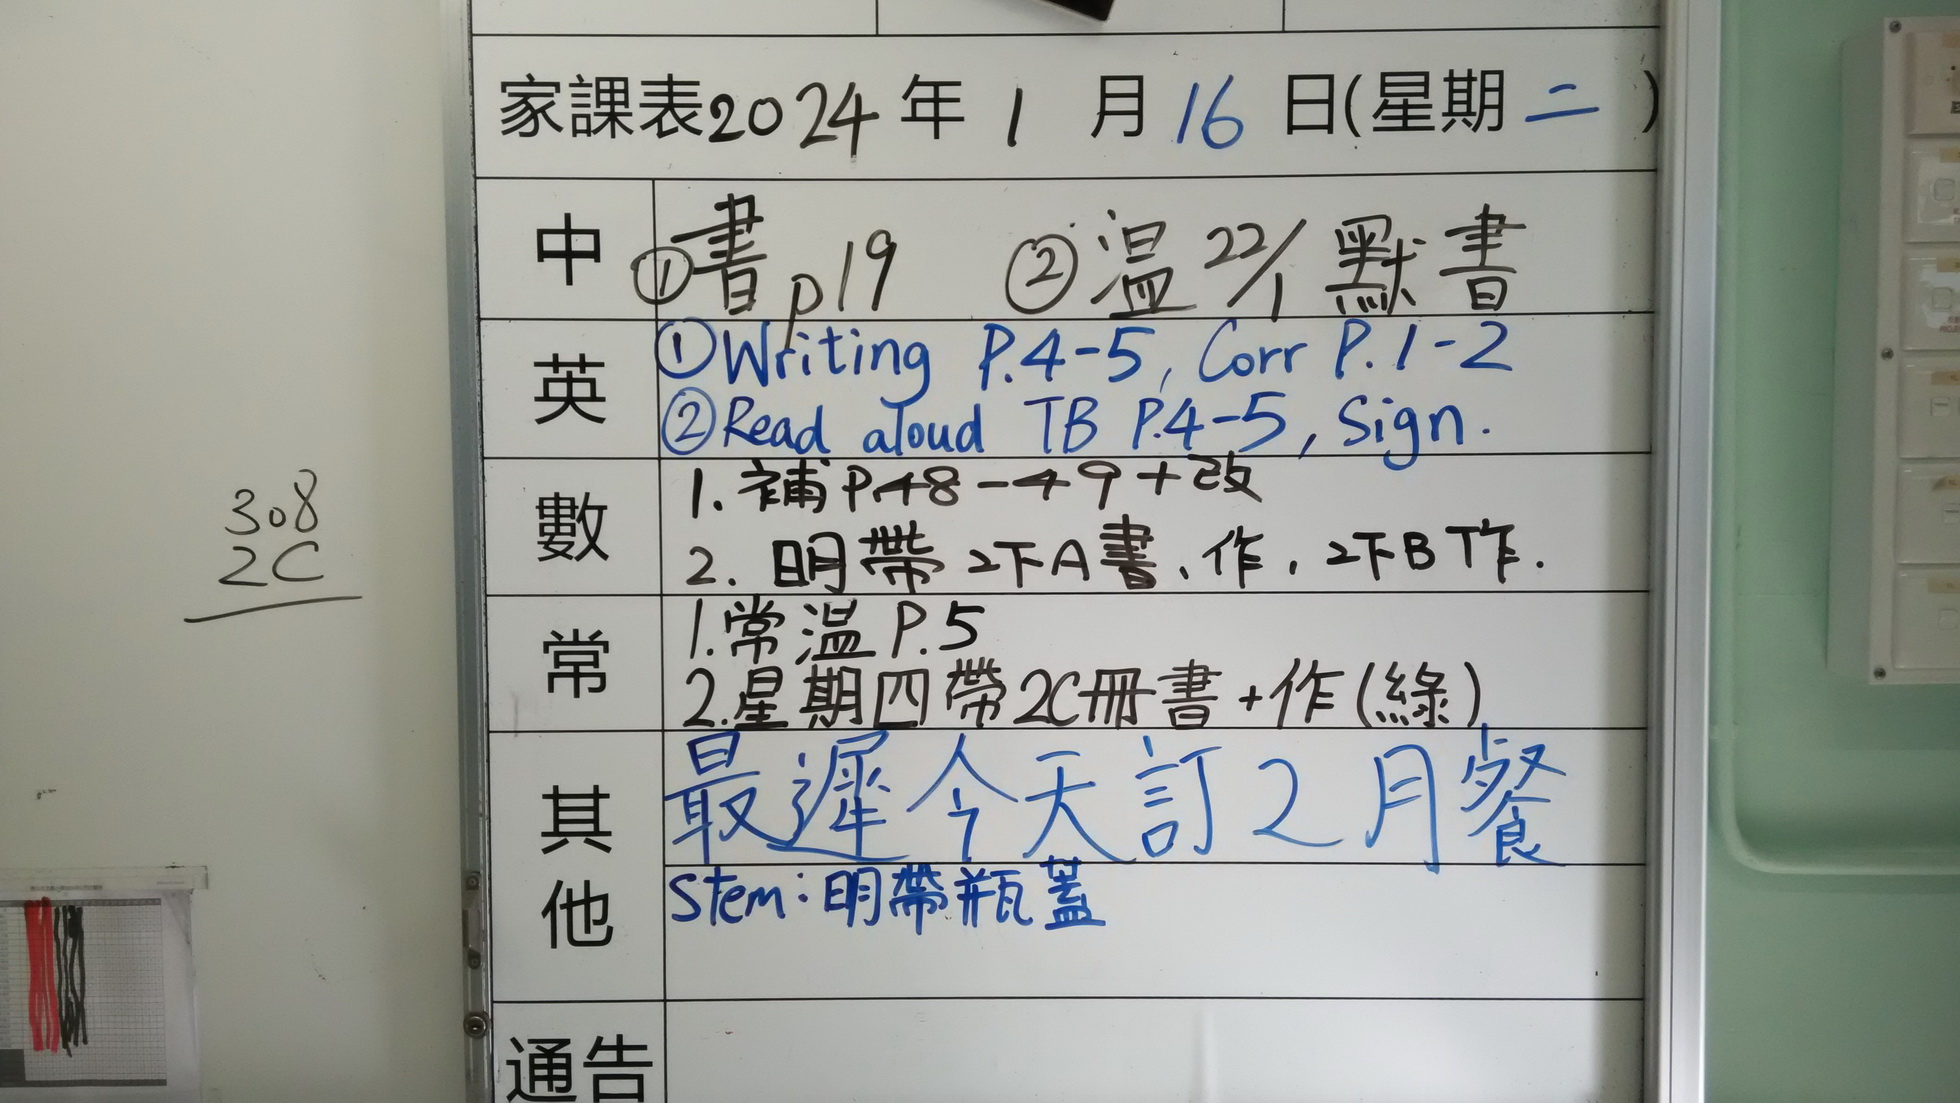 家課表2024年1月16日(星期二)
中 ①書p19 ②温22/1默書
英 ①Writing P.4-5, Corr P.1-2
②Read aloud TB P.4-5, Sign.
數 1. 補P.48-49+改
2. 明帶2下A書、作, 2下B作.
308
2C
常 1.常温P.5
2.星期四帶2C冊書+作(綠)
其他 最遲今天訂2月餐
Stem:明帶瓶蓋
通告